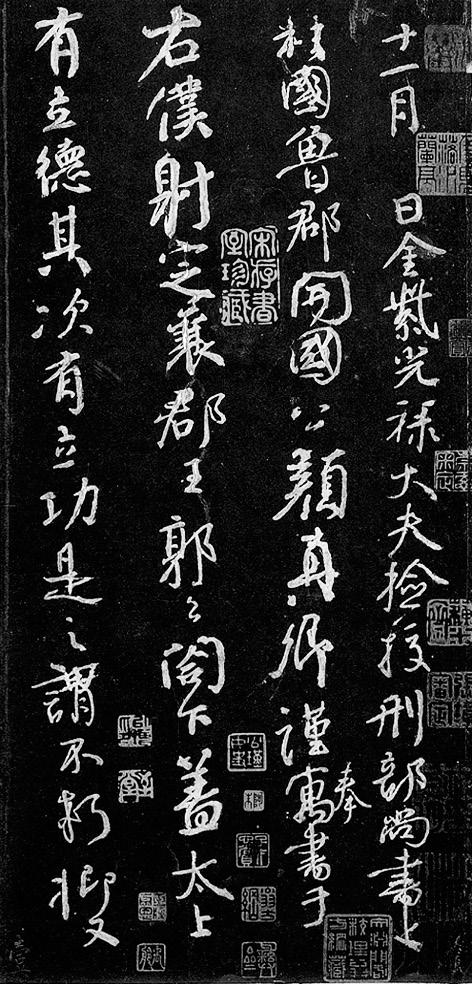 十一月 日金紫光祿大夫檢校刑部尚書上
柱國魯郡開國公顏真卿謹奉寓書于
右僕射定襄郡王郭公閤下蓋太上
有立德其次有立功是之謂不朽抑又
宋存書室珍藏